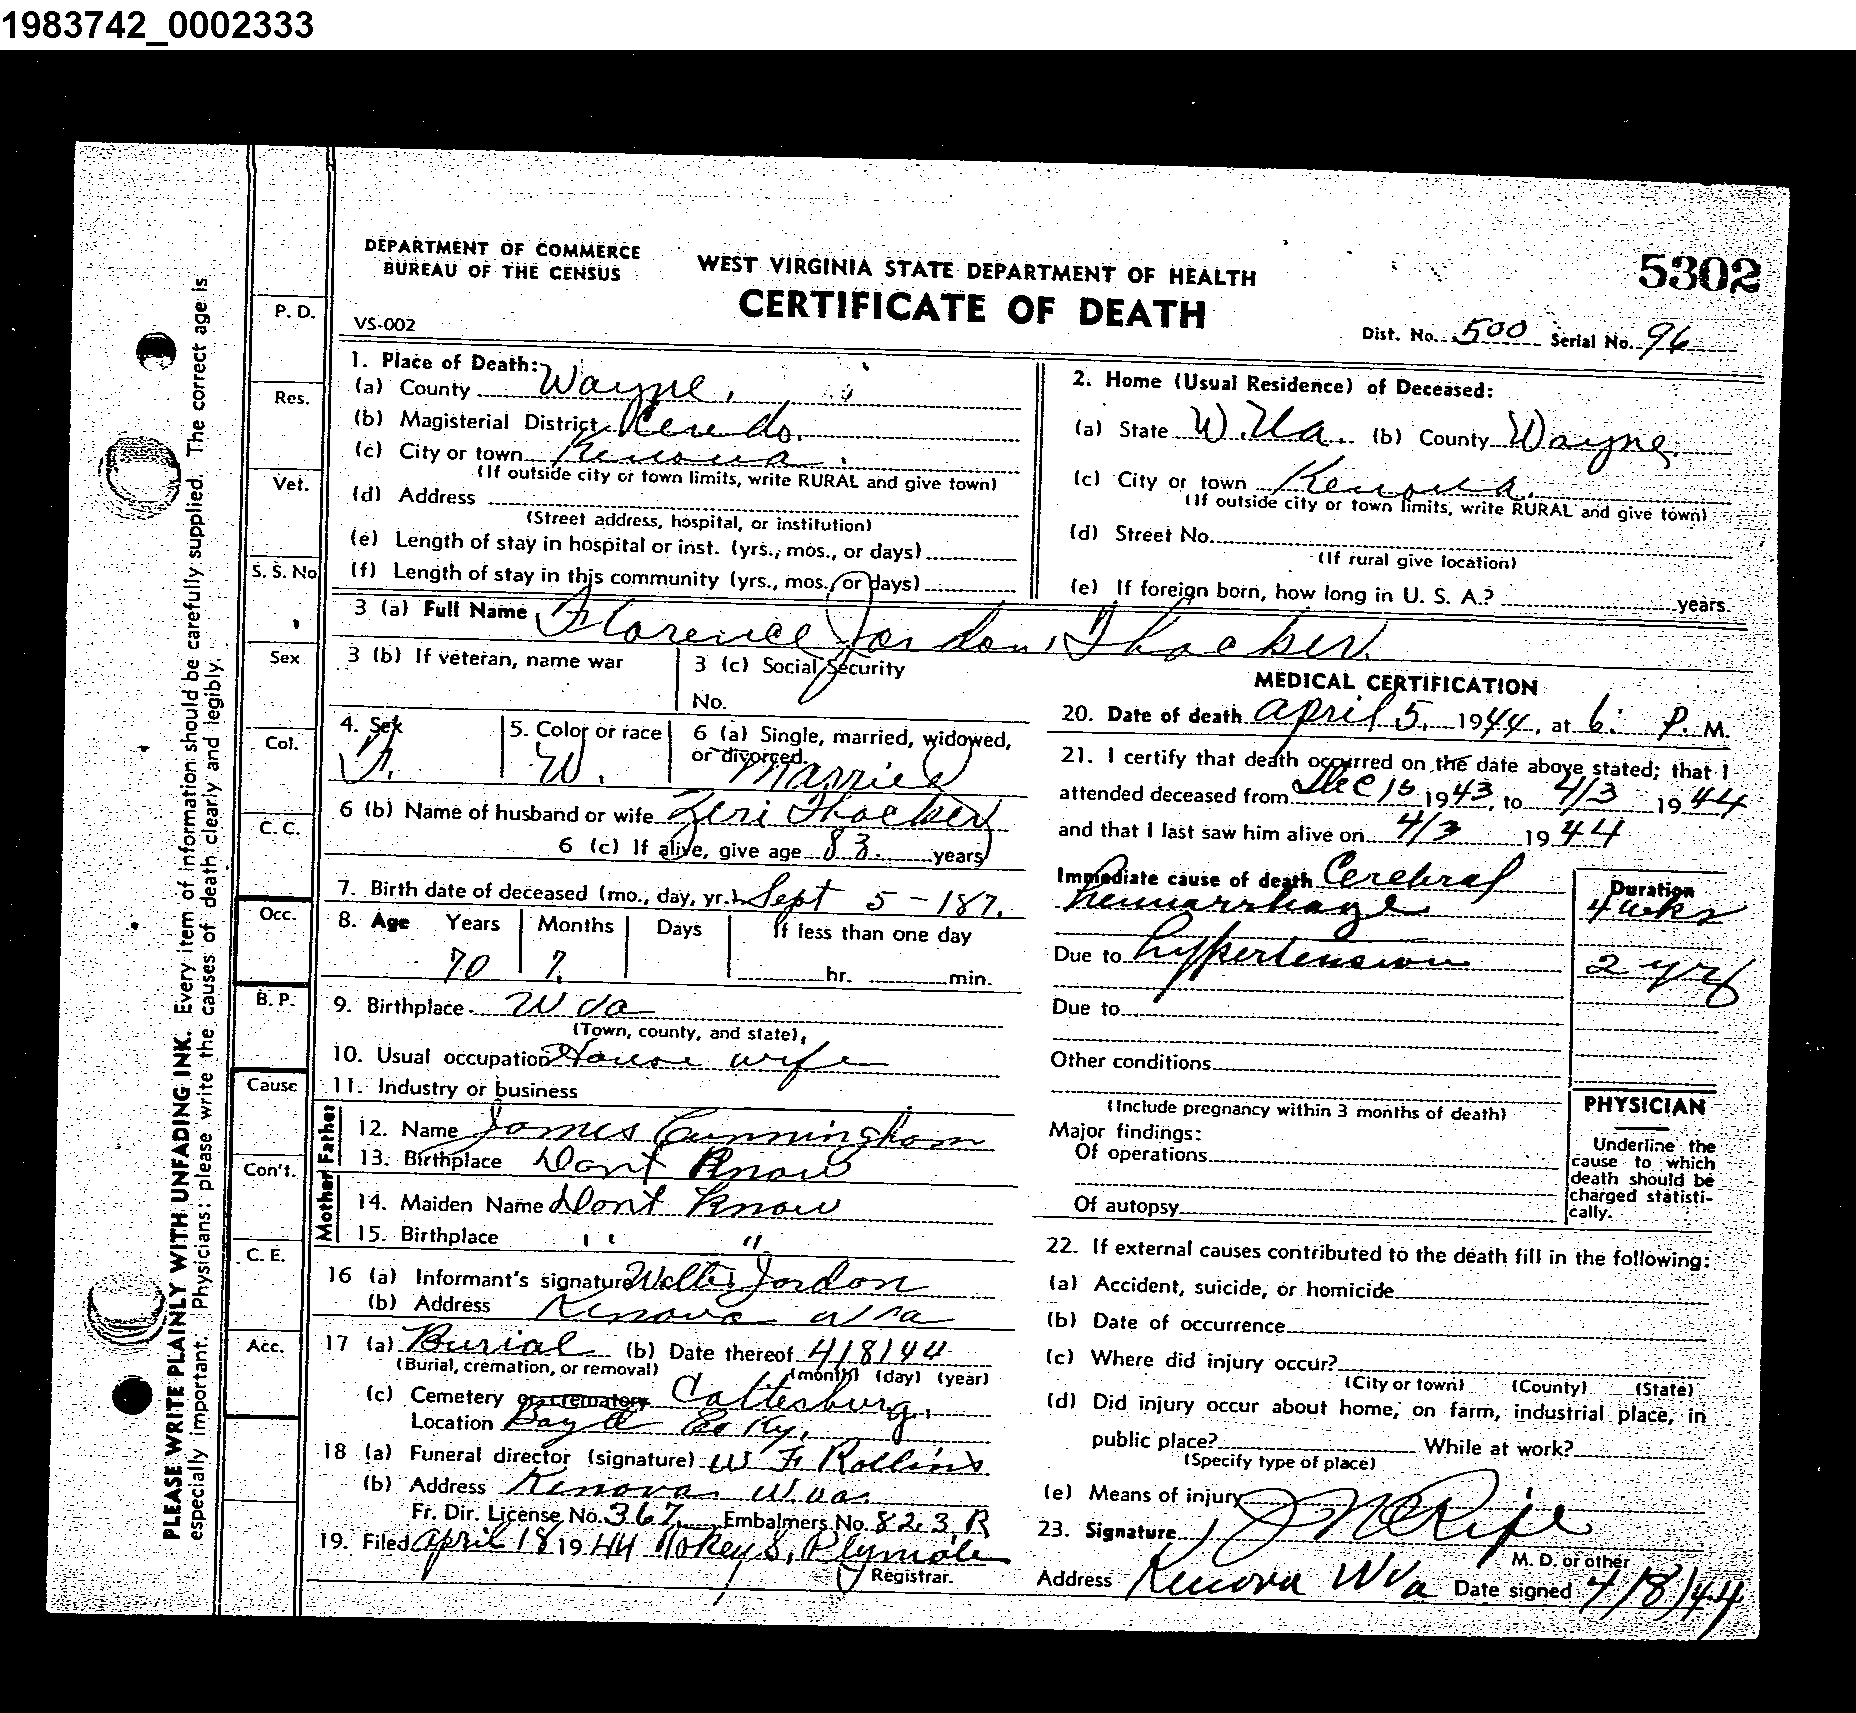 1983742_0002333
DEPARTMENT OF COMMERCE
BUREAU OF THE CENSUS
WEST VIRGINIA STATE DEPARTMENT OF HEALTH
CERTIFICATE OF DEATH
5302
VS-002
Dist. No. 500 Serial No. 96
PLEASE WRITE PLAINLY WITH UNFADING INK. Every item of information should be carefully supplied. The correct age is
especially important. Physicians: please write the causes of death clearly and legibly.
P. D.
Res.
Vet.
S. S. No.
Sex
Col.
C. C.
Occ.
B. P.
Cause
Con't.
C. E.
Acc.
1. Place of Death:
(a) County Wayne.
(b) Magisterial District Ceredo.
(c) City or town Kenova.
(If outside city or town limits, write RURAL and give town)
(d) Address
(Street address, hospital, or institution)
(e) Length of stay in hospital or inst. (yrs., mos., or days)
(f) Length of stay in this community (yrs., mos., or days)
2. Home (Usual Residence) of Deceased:
(a) State W. Va. (b) County Wayne.
(c) City or town Kenova.
(If outside city or town limits, write RURAL and give town)
(d) Street No.
(If rural give location)
(e) If foreign born, how long in U. S. A.? years
3 (a) Full Name Florence Jordon Thacker
3 (b) If veteran, name war
3 (c) Social Security
No.
4. Sex
5. Color or race W.
6 (a) Single, married, widowed,
or divorced. Married
6 (b) Name of husband or wife Thacker
6 (c) If alive, give age 83. years
7. Birth date of deceased (mo., day, yr.) Sept 5 - 187.
8. Age Years Months Days If less than one day
70 7. hr. min.
9. Birthplace W Va
(Town, county, and state)
10. Usual occupation House wife
11. Industry or business
Father
12. Name James Cunningham
13. Birthplace Dont Know
Mother
14. Maiden Name Dont Know
15. Birthplace " "
16 (a) Informant's signature Walter Jordon
(b) Address Kenova W Va
17 (a) Burial (b) Date thereof 4/8/44
(Burial, cremation, or removal) (month) (day) (year)
(c) Cemetery or crematory Cattesburg.
Location Boyd Co Ky.
18 (a) Funeral director (signature) W F Rollins
(b) Address Kenova W. Va.
Fr. Dir. License No. 367 Embalmers No. 823 R
19. Filed April 18 1944 Hokey S. Plymale
Registrar.
MEDICAL CERTIFICATION
20. Date of death April 5. 1944. at 6: P. M.
21. I certify that death occurred on the date above stated; that I
attended deceased from Dec 16 1943. to 4/3 1944
and that I last saw him alive on 4/3 1944
Immediate cause of death Cerebral
hemmarrhage
Duration
4 wks
Due to hypertension
2 yrs
Due to
Other conditions
(Include pregnancy within 3 months of death)
Major findings:
Of operations
Of autopsy
PHYSICIAN
Underline the
cause to which
death should be
charged statisti-
cally.
22. If external causes contributed to the death fill in the following:
(a) Accident, suicide, or homicide
(b) Date of occurrence
(c) Where did injury occur?
(City or town) (County) (State)
(d) Did injury occur about home, on farm, industrial place, in
public place? While at work?
(Specify type of place)
(e) Means of injury
23. Signature
M. D. or other
Address Kenova W Va Date signed 4/8/44